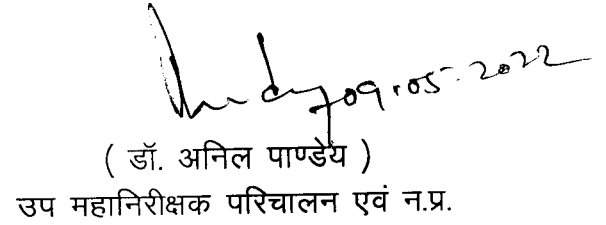 09.05.2022
( डॉ. अनिल पाण्डेय )
उप महानिरीक्षक परिचालन एवं न.प्र.